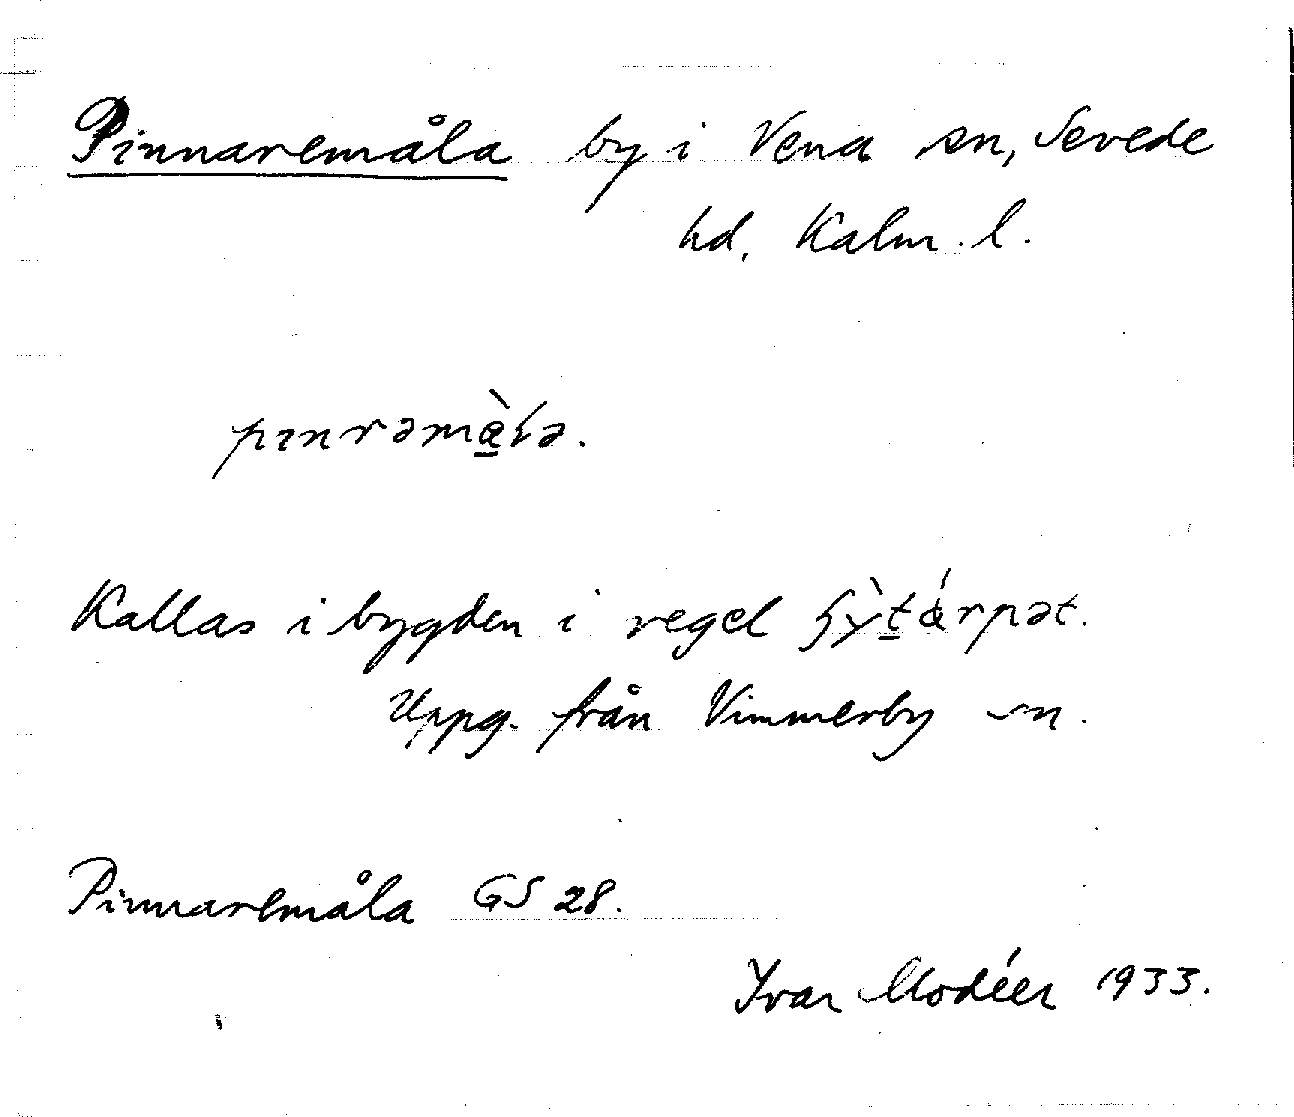 Pinnaremåla by i Vena sn, Sevede
hd. Kalm. l.
pınrəmæ̠̀ɬa.
Kallas i bygden i regel
Uppg. från Vimmerby sn.
Pinnaremåla GS 28.
Ivar Modéer 1933.